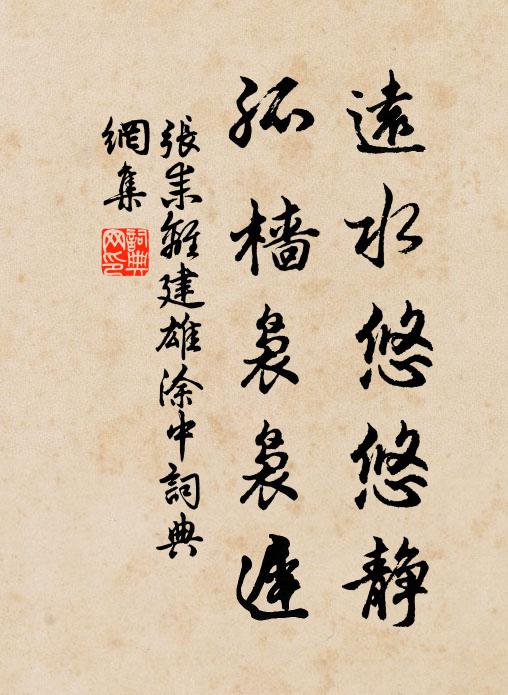 遠水悠悠静
孤檣裊裊遲
張耒離建雄涂中詞典
網集
詞典網印